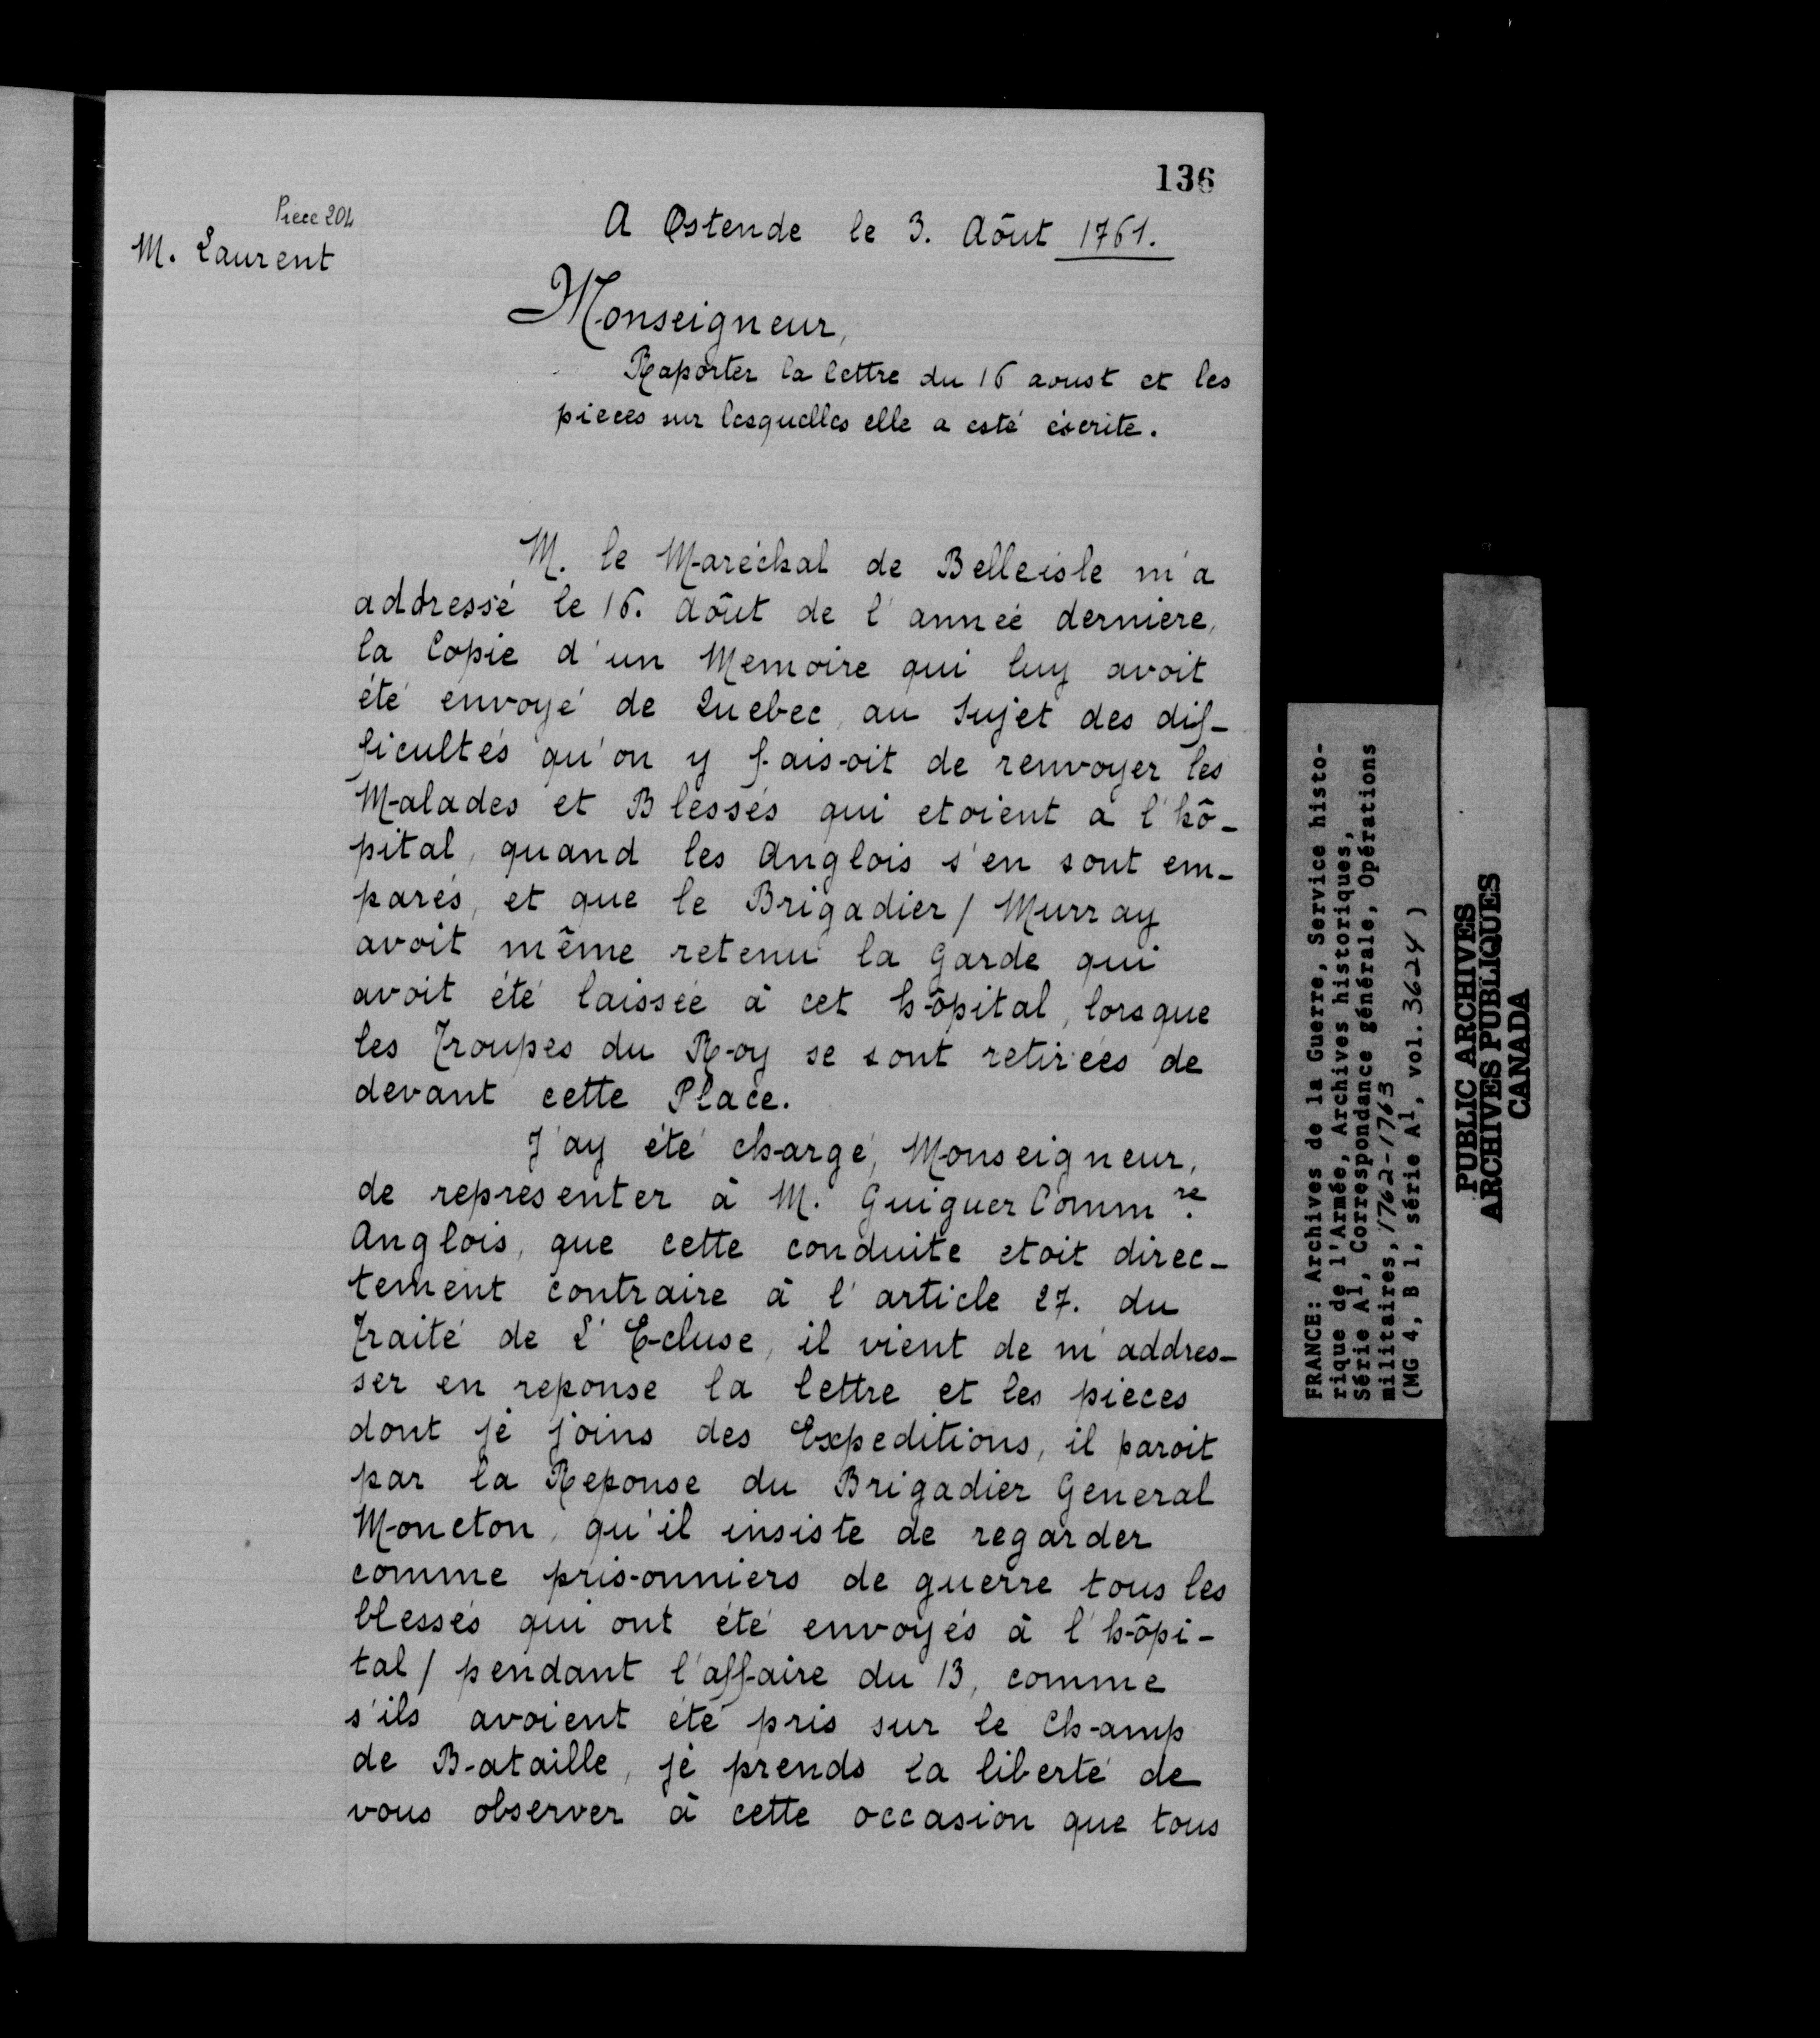 136
Piece 204
M. Laurent
A Ostende le 3. Aôut 1761.
Monseigneur,
Raporter la lettre du 16 aoust et les
pieces sur lesquelles elle a esté écrite.
M. le Maréchal de Belleisle m'a
addressé le 16. Aôut de l'année derniere,
la Copie d'un Memoire qui luy avoit
été envoyé de Quebec, au Sujet des dif-
ficultés qu'on y faisoit de renvoyer les
Malades et Blessés qui etoient à l'hô-
pital, quand les Anglois s'en sont em-
parés, et que le Brigadier / Murray
avoit même retenu la Garde qui
avoit été laissée à cet hôpital, lorsque
les Troupes du Roy se sont retirées de
devant cette Place.
J'ay été chargé, Monseigneur,
de representer à M. Guiguer Comm.re
Anglois, que cette conduite etoit direc-
tement contraire à l'article 27. du
Traité de L'Ecluse, il vient de m'addres-
ser en reponse la lettre et les pieces
dont je joins des Expeditions, il paroit
par la Reponse du Brigadier General
Moncton, qu'il insiste de regarder
comme prisonniers de guerre tous les
blessés qui ont été envoyés à l'hôpi-
tal / pendant l'affaire du 13, comme
s'ils avoient été pris sur le Champ
de Bataille, je prends la liberté de
vous observer à cette occasion que tous
FRANCE: Archives de la Guerre, Service histo-
rique de l'Armée, Archives historiques,
Série A1, Correspondance générale, Opérations
militaires, 1762-1763
(MG 4, B 1, série A1, vol. 3624)
PUBLIC ARCHIVES
ARCHIVES PUBLIQUES
CANADA